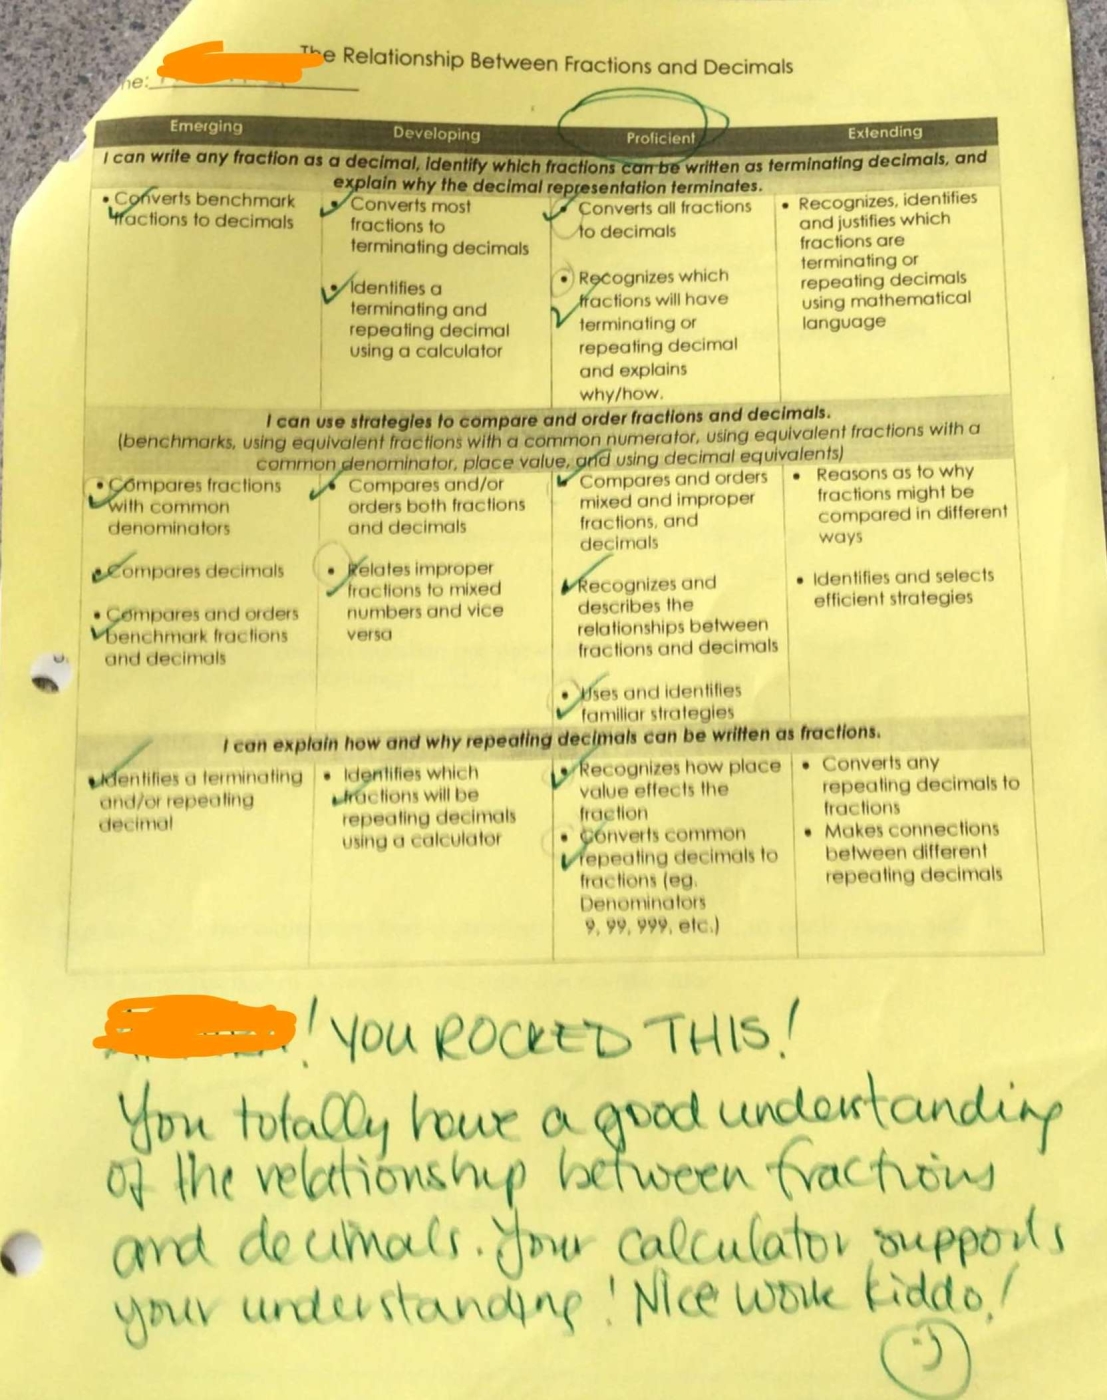 The Relationship Between Fractions and Decimals
me:
Emerging Developing Proficient Extending
I can write any fraction as a decimal, identify which fractions can be written as terminating decimals, and
explain why the decimal representation terminates.
• Converts benchmark
fractions to decimals
• Converts most
fractions to
terminating decimals
• Identifies a
terminating and
repeating decimal
using a calculator
• Converts all fractions
to decimals
• Recognizes which
fractions will have
terminating or
repeating decimal
and explains
why/how.
• Recognizes, identifies
and justifies which
fractions are
terminating or
repeating decimals
using mathematical
language
I can use strategies to compare and order fractions and decimals.
(benchmarks, using equivalent fractions with a common numerator, using equivalent fractions with a
common denominator, place value, and using decimal equivalents)
• Compares fractions
with common
denominators
• Compares decimals
• Compares and orders
benchmark fractions
and decimals
• Compares and/or
orders both fractions
and decimals
• Relates improper
fractions to mixed
numbers and vice
versa
• Compares and orders
mixed and improper
fractions, and
decimals
• Recognizes and
describes the
relationships between
fractions and decimals
• Uses and identifies
familiar strategies
• Reasons as to why
fractions might be
compared in different
ways
• Identifies and selects
efficient strategies
I can explain how and why repeating decimals can be written as fractions.
• Identifies a terminating
and/or repeating
decimal
• Identifies which
fractions will be
repeating decimals
using a calculator
• Recognizes how place
value effects the
fraction
• Converts common
repeating decimals to
fractions (eg.
Denominators
9, 99, 999, etc.)
• Converts any
repeating decimals to
fractions
• Makes connections
between different
repeating decimals
! YOU ROCKED THIS!
You totally have a good understanding
of the relationship between fractions
and decimals. Your calculator supports
your understanding! Nice work kiddo!
:)